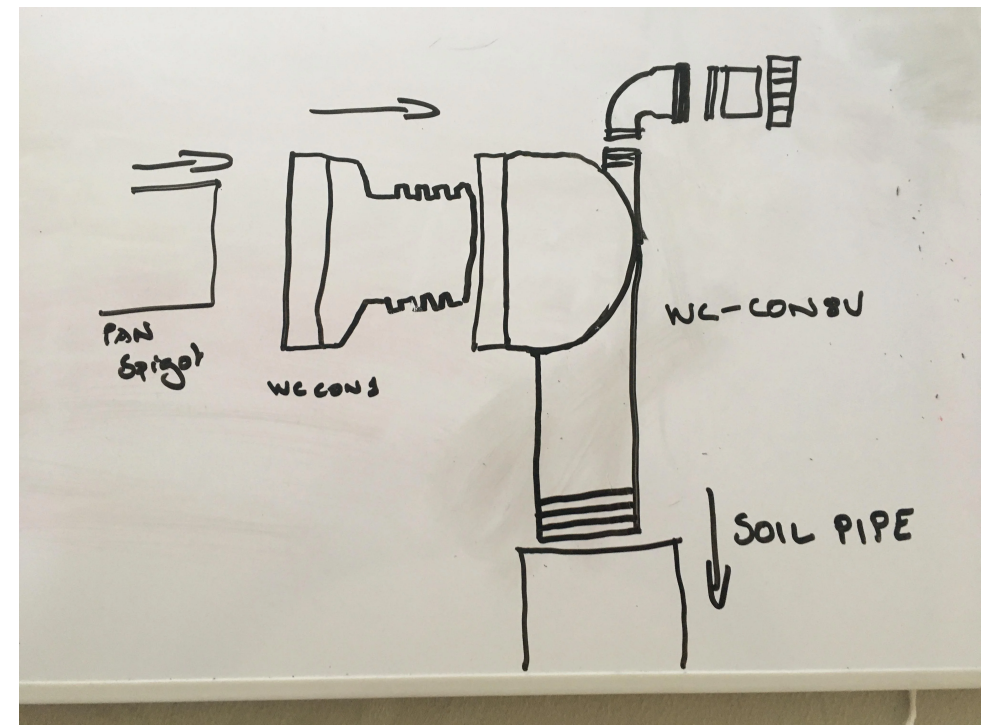 PAN
Spigot
WCCON1
WC-CON8V
SOIL PIPE